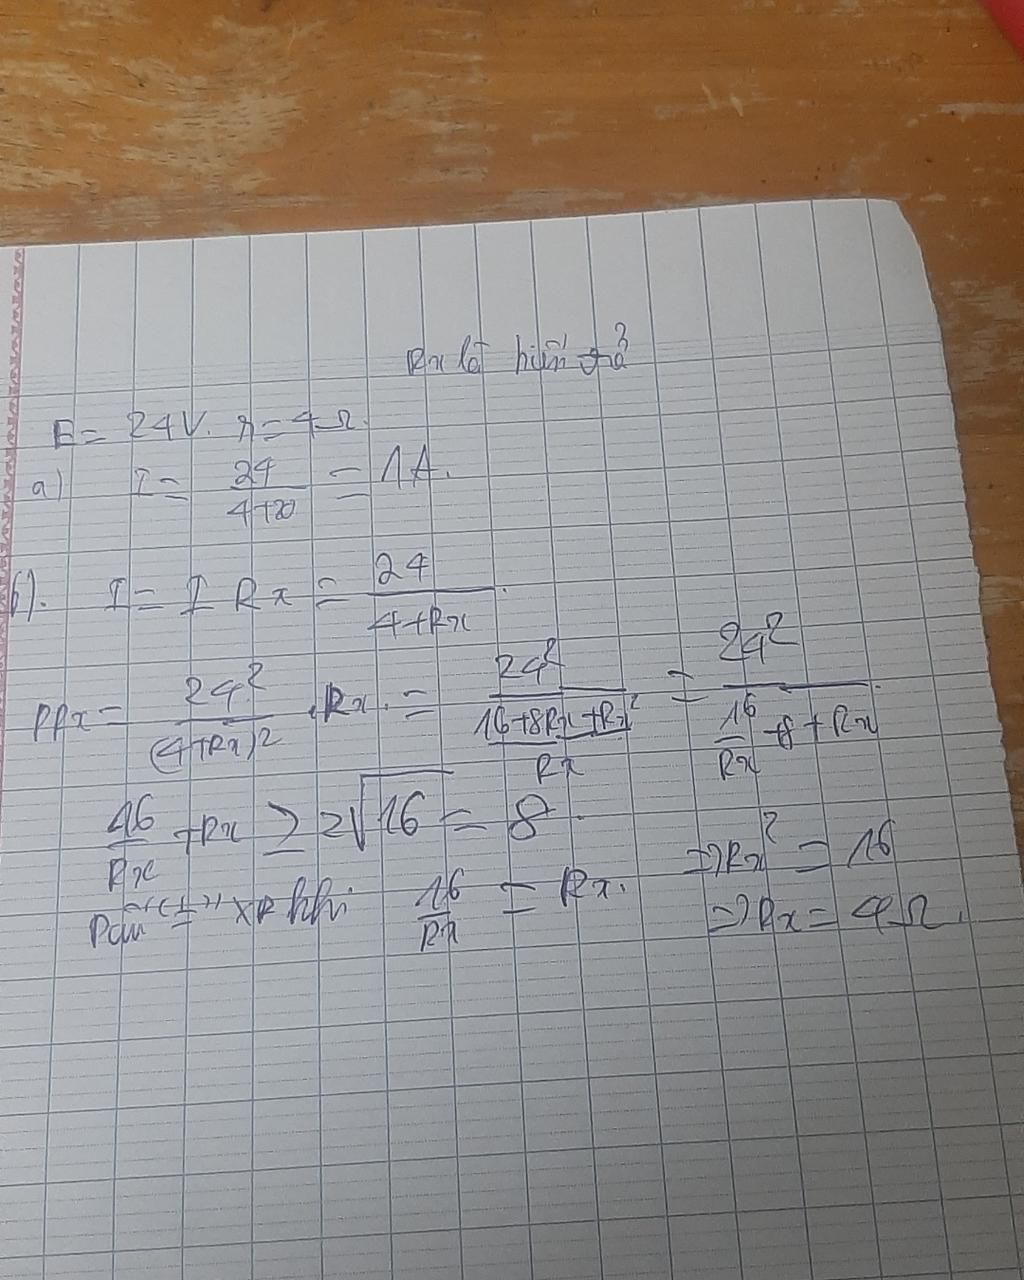 Rx là biến trở
E = 24V. r = 4Ω.
a) I = 24/(4+20) = 1A.
b). I = I Rx = 24/(4+Rx).
PRx = 24²/(4+Rx)² . Rx. = 24²/((16+8Rx+Rx²)/Rx) = 24²/(16/Rx +8+Rx).
16/Rx + Rx ≥ 2√16 = 8.
khi 16/Rx = Rx. => Rx² = 16
=> Rx = 4Ω.